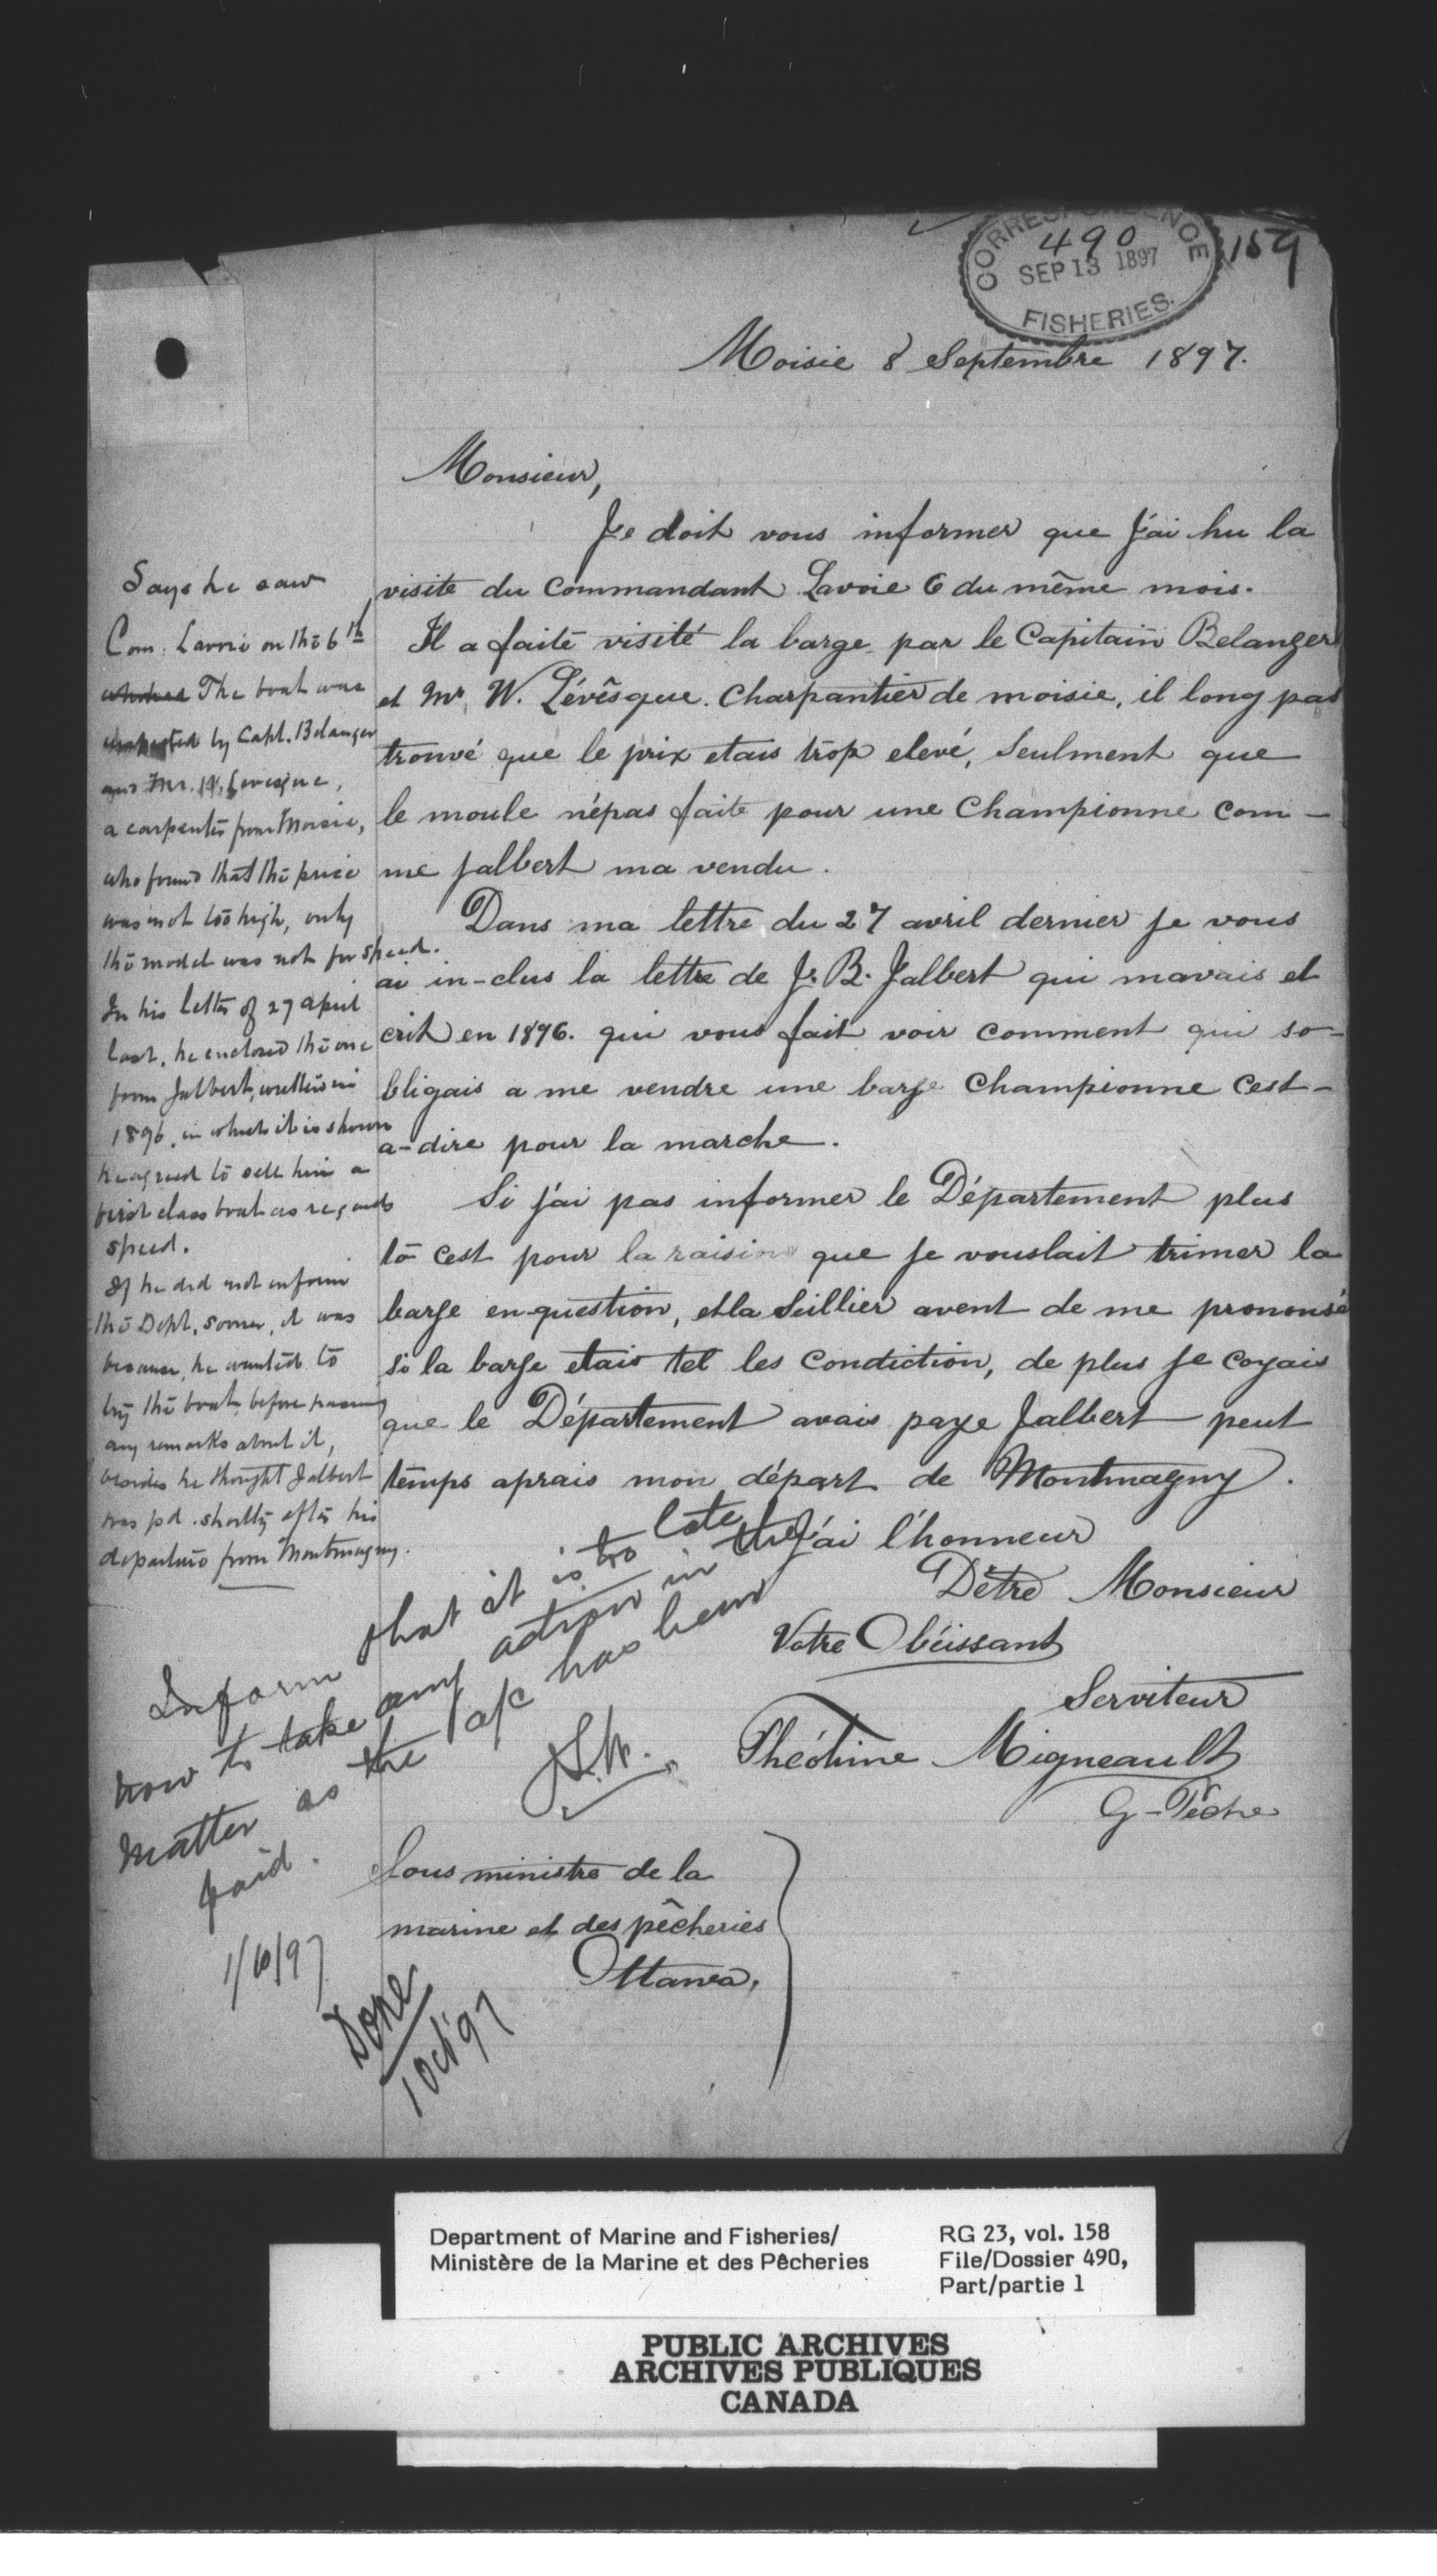 CORRESPONDENCE
490
SEP 13 1897
FISHERIES.
159
Moisie 8 Septembre 1897.
Monsieur,
Je doit vous informer que J'ai hu la
visite du Commandant Lavoie 6 du même mois.
Il a faite visité la barge par le Capitain Belanger
et Mr. W. Lévêsque. Charpantier de moisie, il long pas
trouvé que le prix etais trôp elevé, Seulment que
le moule népas faite pour une Championne com-
me Jalbert ma vendu.
Dans ma lettre du 27 avril dernier Je vous
ai in-clus la lettre de J. B. Jalbert qui mavais et
crit en 1896. qui vous fait voir comment qui so-
bligais a me vendre une barge Championne Cest-
a-dire pour la marche.
Si j'ai pas informer le Département plus
tô cest pour la raision que Je vouslait trimer la
barge en-question, et la Seillier avent de me prononsé
Si la barge etais tel les Condiction, de plus Je coyais
que le Département avais paye Jalbert peut
temps aprais mon départ de Montmagny.
J'ai l'honneur
D'être Monsieur
Votre Obéissant
Serviteur
Théotime Migneault
G-Pêche
Sous ministre de la
marine et des pêcheries
Ottawa.
Says he saw
Com. Lavoie on the 6th
The boat was
inspected by Capt. Belanger
and Mr. W. Levesque,
a carpenter from Moisie,
who found that the price
was not too high, only
the model was not for speed.
In his letter of 27 april
last, he enclosed the one
from Jalbert, written in
1896, in which it is shown
he agreed to sell him a
first class boat as regards
speed.
If he did not inform
the Dept. sooner, it was
because, he wanted to
try the boat, before passing
any remarks about it,
besides he thought Jalbert
was pd. shortly after his
departure from Montmagny.
Inform that it is too late
now to take any action in the
matter as the a/c has been
paid.
1/10/97
Done
1 Oct 97
Department of Marine and Fisheries/
Ministère de la Marine et des Pêcheries
RG 23, vol. 158
File/Dossier 490,
Part/partie 1
PUBLIC ARCHIVES
ARCHIVES PUBLIQUES
CANADA